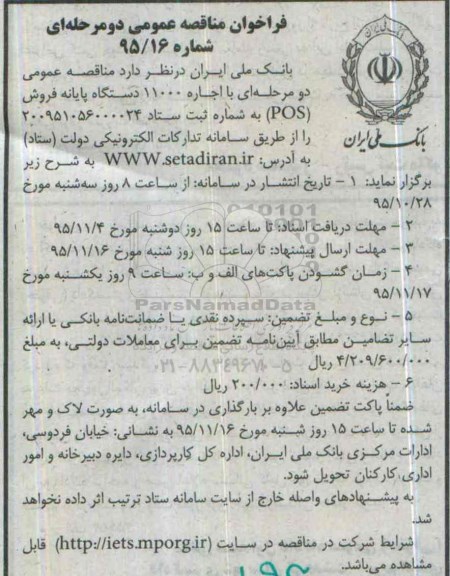 فراخوان مناقصه عمومی دومرحله‌ای
شماره ۹۵/۱۶
بانک ملی ایران
بانک ملی ایران درنظر دارد مناقصه عمومی
دو مرحله‌ای با اجاره ۱۱۰۰۰ دستگاه پایانه فروش
(POS) به شماره ثبت ستاد ۲۰۰۹۵۱۰۵۶۰۰۰۰۲۴
را از طریق سامانه تدارکات الکترونیکی دولت (ستاد)
به آدرس: WWW.setadiran.ir به شرح زیر
برگزار نماید: ۱ – تاریخ انتشار در سامانه: از ساعت ۸ روز سه‌شنبه مورخ
۹۵/۱۰/۲۸
۲ – مهلت دریافت اسناد: تا ساعت ۱۵ روز دوشنبه مورخ ۹۵/۱۱/۴
۳ – مهلت ارسال پیشنهاد: تا ساعت ۱۵ روز شنبه مورخ ۹۵/۱۱/۱۶
۴ – زمان گشودن پاکت‌های الف و ب: ساعت ۹ روز یکشنبه مورخ
۹۵/۱۱/۱۷
ParsNamadData
۵ – نوع و مبلغ تضمین: سپرده نقدی یا ضمانت‌نامه بانکی یا ارائه
سایر تضامین مطابق آیین‌نامه تضمین برای معاملات دولتی، به مبلغ
۴/۲۰۹/۶۰۰/۰۰۰ ریال
۰۲۱-۸۸۳۴۹۶۷۰-۵
۶ – هزینه خرید اسناد: ۲۰۰/۰۰۰ ریال
ضمناً پاکت تضمین علاوه بر بارگذاری در سامانه، به صورت لاک و مهر
شده تا ساعت ۱۵ روز شنبه مورخ ۹۵/۱۱/۱۶ به نشانی: خیابان فردوسی،
ادارات مرکزی بانک ملی ایران، اداره کل کارپردازی، دایره دبیرخانه و امور
اداری کارکنان تحویل شود.
به پیشنهادهای واصله خارج از سایت سامانه ستاد ترتیب اثر داده نخواهد
شد.
شرایط شرکت در مناقصه در سایت (http://iets.mporg.ir) قابل
مشاهده می‌باشد.